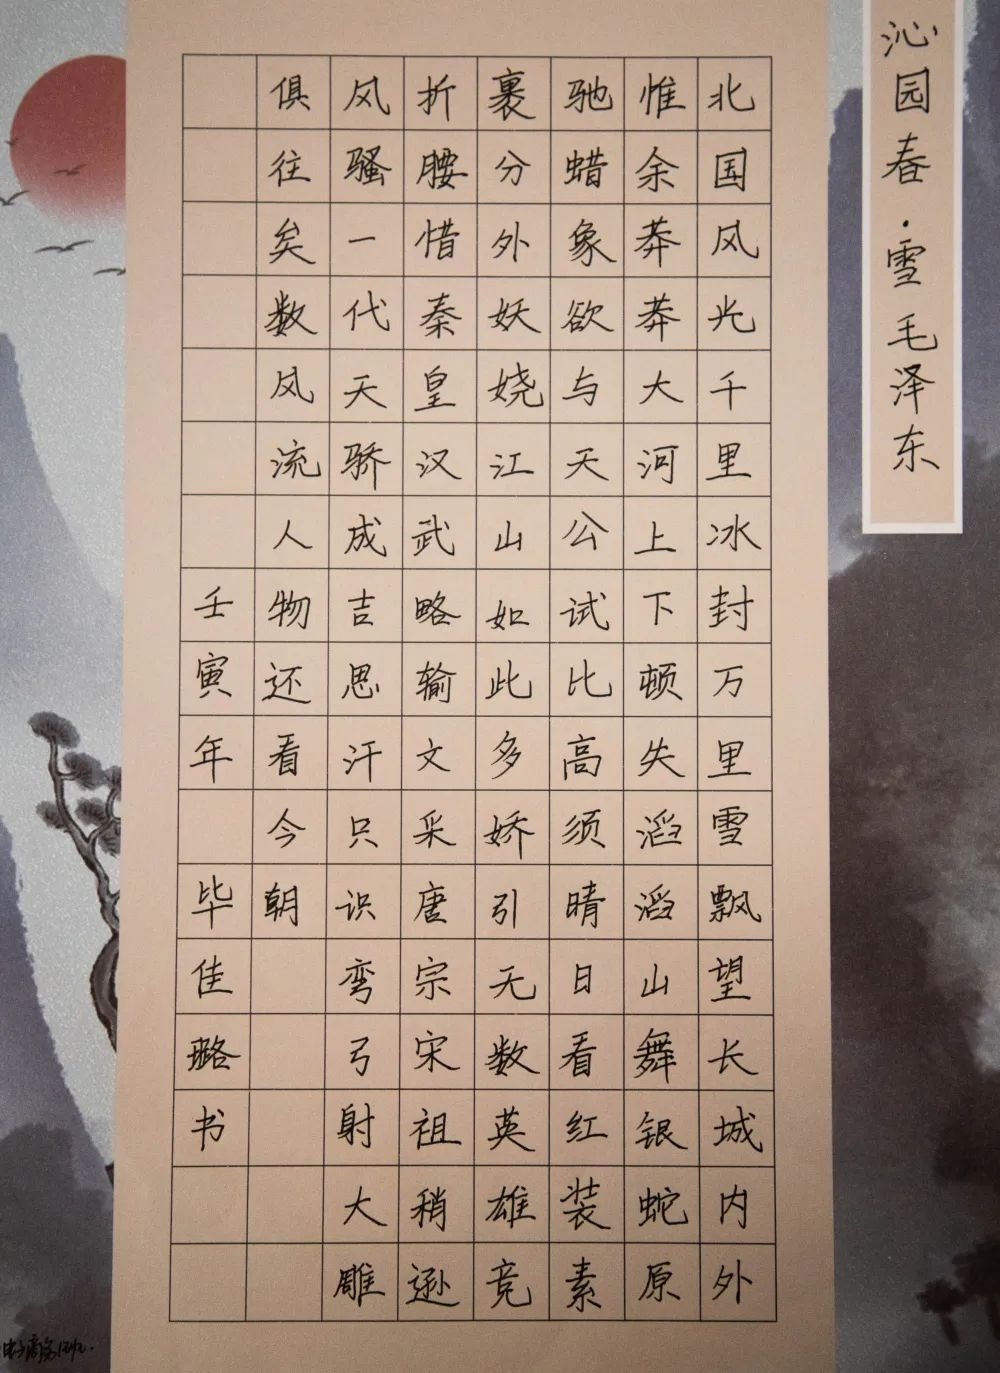 沁园春·雪 毛泽东
北国风光千里冰封万里雪飘望长城内外
惟余莽莽大河上下顿失滔滔山舞银蛇原
驰蜡象欲与天公试比高须晴日看红装素
裹分外妖娆江山如此多娇引无数英雄竞
折腰惜秦皇汉武略输文采唐宗宋祖稍逊
风骚一代天骄成吉思汗只识弯弓射大雕
俱往矣数风流人物还看今朝
壬寅年 毕佳璐书